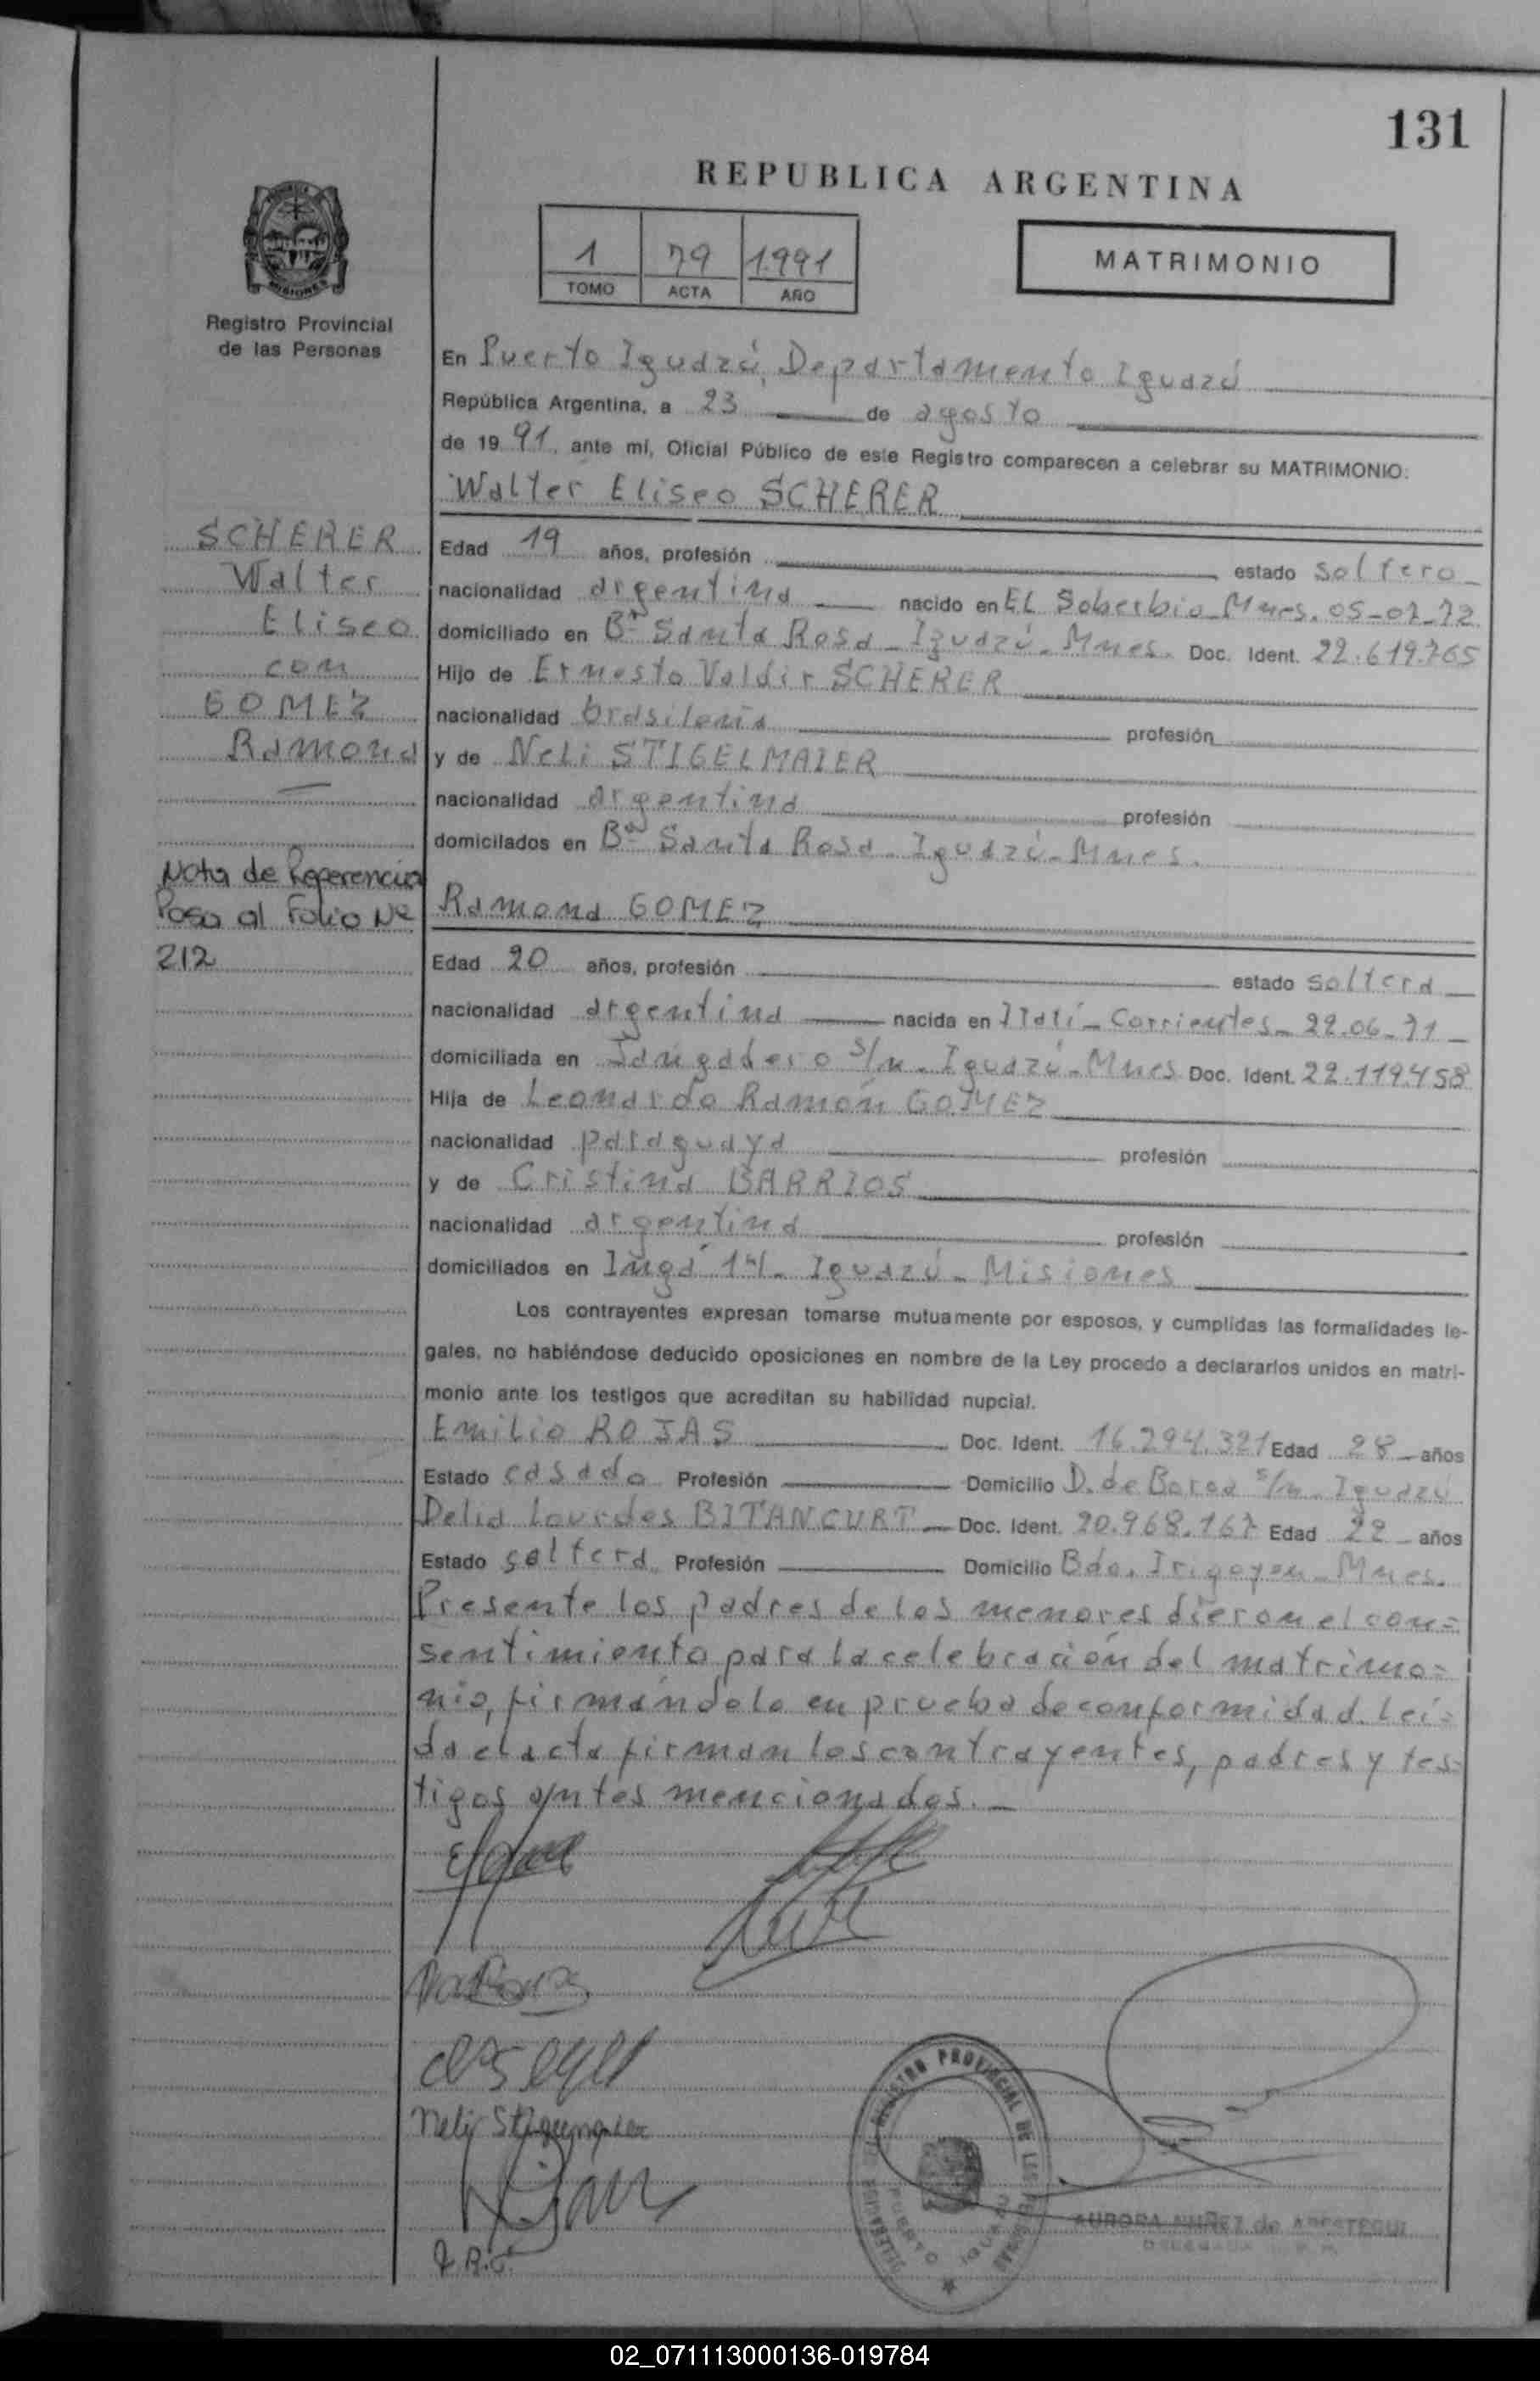 131
REPUBLICA ARGENTINA
1 79 1991
TOMO ACTA AÑO
MATRIMONIO
MISIONES
Registro Provincial
de las Personas
En Puerto Iguazú, Departamento Iguazú
República Argentina, a 23 de agosto
de 19 91, ante mí, Oficial Público de este Registro comparecen a celebrar su MATRIMONIO:
Walter Eliseo SCHERER
SCHERER
Walter
Eliseo
con
GOMEZ
Ramona
Nota de Referencia
Pasa al Folio Nº
212
Edad 19 años, profesión estado soltero
nacionalidad argentina nacido en El Soberbio_Mnes. 05-07-72
domiciliado en Bº Santa Rosa_Iguazú_Mnes. Doc. Ident. 22.619.765
Hijo de Ernesto Valdir SCHERER
nacionalidad brasileña profesión
y de Neli STIGELMAIER
nacionalidad argentina profesión
domicilados en Bº Santa Rosa_Iguazú_Mnes.
Ramona GOMEZ
Edad 20 años, profesión estado soltera
nacionalidad argentina nacida en Itatí_Corrientes_22.06_71
domiciliada en Jangadero s/n_Iguazú_Mnes Doc. Ident. 22.119.458
Hija de Leonardo Ramón GOMEZ
nacionalidad paraguaya profesión
y de Cristina BARRIOS
nacionalidad argentina profesión
domiciliados en Ingá 141_Iguazú_Misiones
Los contrayentes expresan tomarse mutuamente por esposos, y cumplidas las formalidades le-
gales, no habiéndose deducido oposiciones en nombre de la Ley procedo a declararlos unidos en matri-
monio ante los testigos que acreditan su habilidad nupcial.
Emilio ROJAS Doc. Ident. 16.294.321 Edad 28 años
Estado casado Profesión Domicilio D. de Bocca s/n_Iguazú
Delia Lourdes BITANCURT Doc. Ident. 20.968.167 Edad 22 años
Estado soltera Profesión Domicilio Bdo. Irigoyen_Mnes.
Presente los padres de los menores dieron el con=
sentimiento para la celebración del matrimo=
nio, firmándolo en prueba de conformidad. Leí=
da el acta firman los contrayentes, padres y tes=
tigos antes mencionados._
REGISTRO PROVINCIAL DE LAS PERSONAS
DELEGACION
PUERTO IGUAZU
AURORA NUÑEZ de ARESTEGUI
DELEGADA
02_071113000136-019784